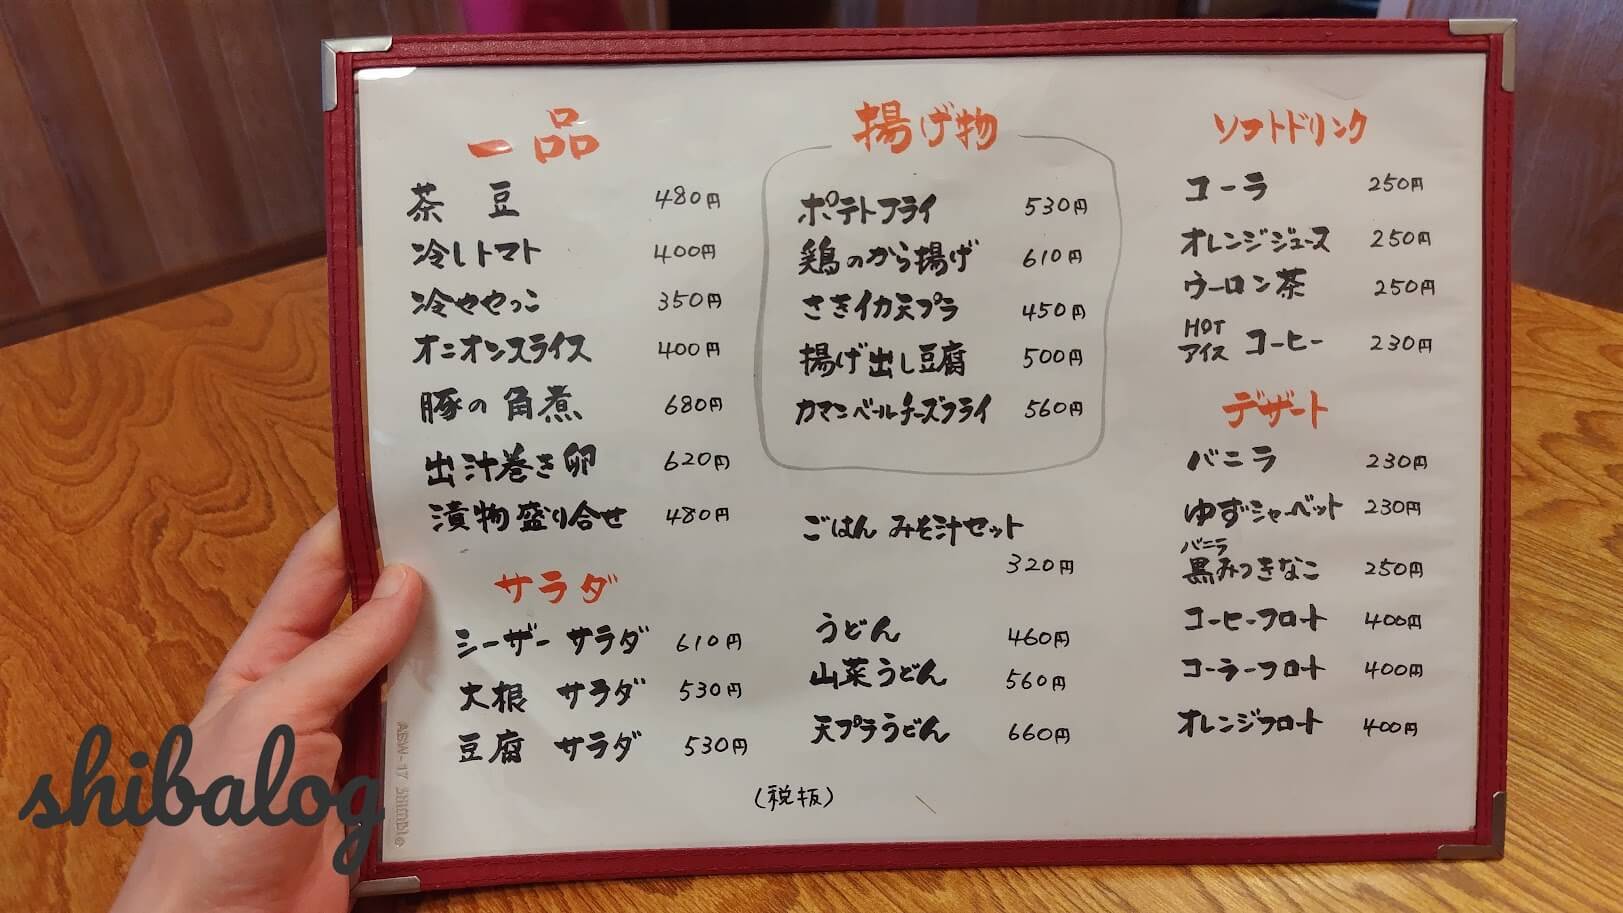 一品
茶豆 480円
冷しトマト 400円
冷ややっこ 350円
オニオンスライス 400円
豚の角煮 680円
出汁巻き卵 620円
漬物盛り合せ 480円
サラダ
シーザーサラダ 610円
大根 サラダ 530円
豆腐 サラダ 530円
揚げ物
ポテトフライ 530円
鶏のから揚げ 610円
さきイカ天プラ 450円
揚げ出し豆腐 500円
カマンベールチーズフライ 560円
ごはん みそ汁セット
320円
うどん 460円
山菜うどん 560円
天プラうどん 660円
(税抜)
ソフトドリンク
コーラ 250円
オレンジジュース 250円
ウーロン茶 250円
HOT
アイス コーヒー 230円
デザート
バニラ 230円
ゆずシャーベット 230円
バニラ
黒みつきなこ 250円
コーヒーフロート 400円
コーラーフロート 400円
オレンジフロート 400円
ABW-17 Shimbi
shibalog